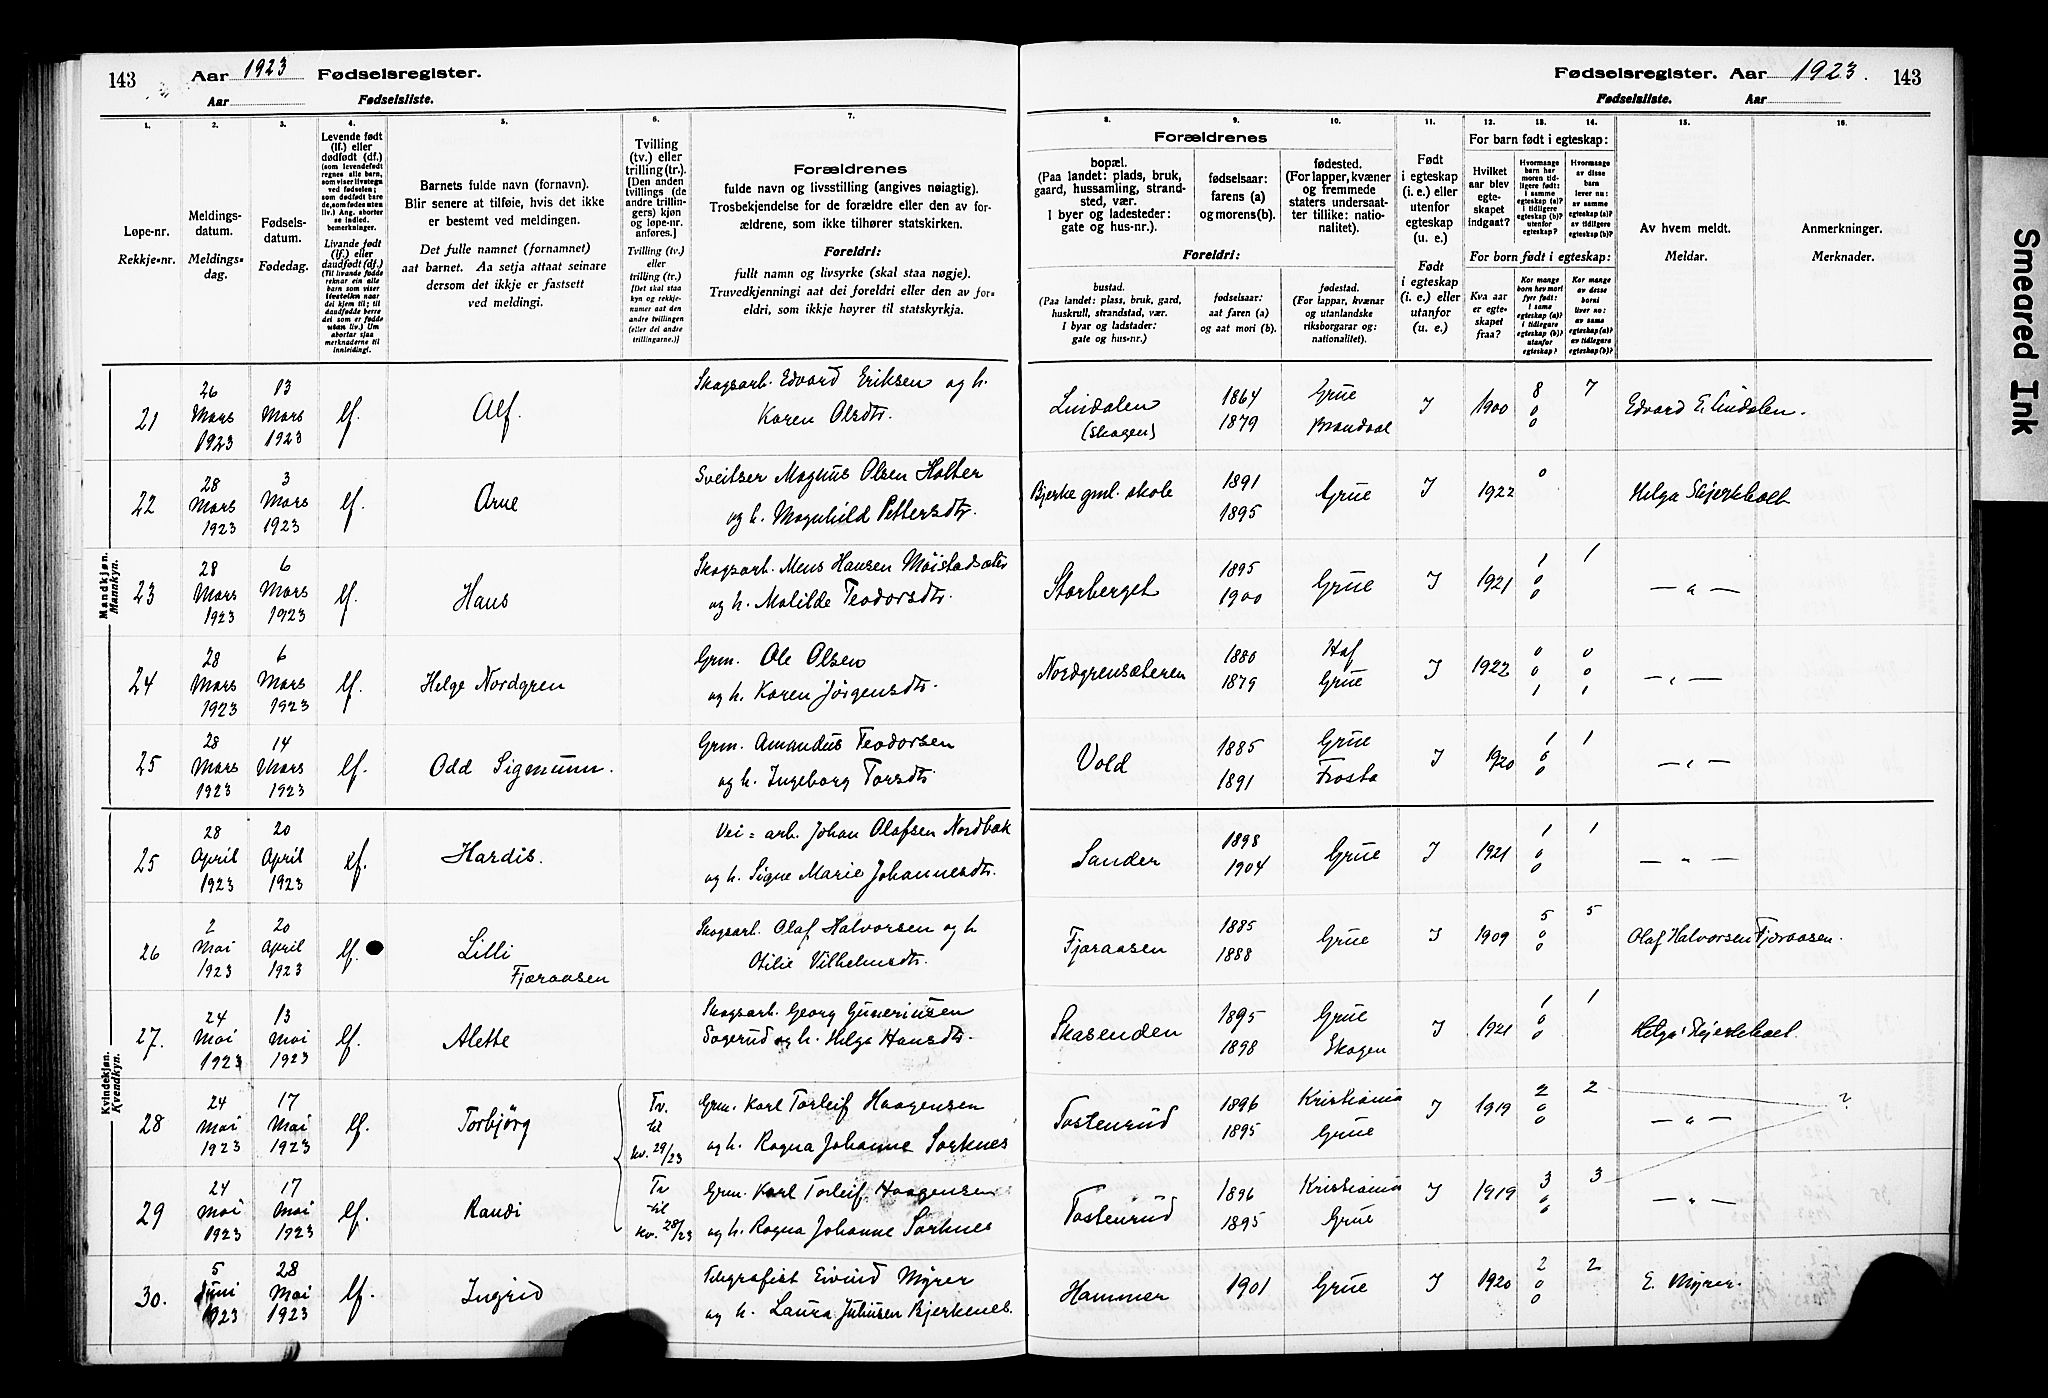 143 Aar 1923 Fødselsregister.
Aar Fødselsliste.
Fødselsregister. Aar 1923. 143
Fødselsliste. Aar
Smeared Ink
1. 2. 3. 4. 5. 6. 7. 8. 9. 10. 11. 12. 13. 14. 15. 16.
Løpe-nr.
Rekkje-nr.
Meldings-
datum.
Meldings-
dag.
Fødsels-
datum.
Fødedag.
Levende født
(lf.) eller
dødfødt (df.)
(som levendefødt
regnes alle barn,
som viser livstegn
ved fødselen;
som dødfødt bare
de, som fødes uten
liv.) Ang. aborter
se indled.
bemerkninger.
Livande født
(lf.) eller
daudfødt (df.)
(Til livande fødde
reknar ein alle
born som viser
livsteikn naar
dei kjem til; til
daudfødde berre
dei som er fødde
utan liv.) Um
abortar sjaa
merknaderne til
innleiding).
Barnets fulde navn (fornavn).
Blir senere at tilføie, hvis det ikke
er bestemt ved meldingen.
Det fulle namnet (fornamnet)
aat barnet. Aa setja attaat seinare
dersom det ikkje er fastsett
ved meldingi.
Tvilling
(tv.) eller
trilling (tr.).
[Den anden
tvillings (de
andre trillin-
gers) kjøn
og løpe-nr.
anføres.]
Tvilling (tv.)
eller
trilling (tr.)
[Det skal staa
kyn og rekkje-
numer aat den
andre tvillingen
(eller dei andre
trillingarne.)]
Forældrenes
fulde navn og livsstilling (angives nøiagtig).
Trosbekjendelse for de forældre eller den av for-
ældrene, som ikke tilhører statskirken.
Foreldri:
fullt namn og livsyrke (skal staa nøgje).
Truvedkjenningi aat dei foreldri eller den av for-
eldri, som ikkje høyrer til statskyrkja.
Forældrenes
bopæl.
(Paa landet: plads, bruk,
gaard, hussamling, strand-
sted, vær.
I byer og ladesteder:
gate og hus-nr.).
fødselsaar:
farens (a)
og morens (b).
fødested.
(For lapper, kvæner
og fremmede
staters undersaat-
ter tillike: natio-
nalitet).
Foreldri:
bustad.
(Paa landet: plass, bruk, gard,
huskrull, strandstad, vær.
I byar og ladstader:
gate og hus-nr.)
fødselsaar:
aat faren (a)
og aat mori (b).
fødestad.
(For lappar, kvænar
og utanlandske
riksborgarar og:
nationalitet).
Født
i egteskap
(i. e.) eller
utenfor
egteskap
(u. e.)
Født
i egteskap
(i. e.) eller
utanfor
(u. e.)
For barn født i egteskap:
Hvilket
aar blev
egte-
skapet
indgaat?
Hvormange
barn har
moren tid-
ligere født:
i samme
egteskap (a)?
i tidligere
egteskap (b)?
utenfor
egteskap?
Hvormange
av disse
barn
lever nu:
av samme
egteskap (a)?
av tidligere
egteskap (b)?
For born født i egteskap:
Kva aar
er egte-
skapet
fraa?
Kor mange
born hev mori
fyrr født:
i same
egteskap (a)?
i tidlegare
egteskap (b)?
utanfor
egteskap?
Kor mange
av desse
borni
liver nu:
av same
egteskap (a)?
av tidlegare
egteskap (b)?
Av hvem meldt.
Meldar.
Anmerkninger.
Merknader.
Mandkjøn.
Mannkyn.
21 26 Mars 1923 13 Mars 1923 lf. Alf. Skogsarb. Edvard Eriksen og h.
Karen Olsdtr. Lindalen (Skogen) 1864 1879 Grue Brandval J 1900 8 0 0 7 Edvard E. Lindalen.
22 28 Mars 1923 3 Mars 1923 lf. Arne Sveitser Magnus Olsen Holter
og h. Magnhild Pettersdtr. Bjerke gml. skole 1891 1895 Grue J 1922 0 Helga Skjerkholt
23 28 Mars 1923 6 Mars 1923 lf. Hans Skogsarb. Mens Hansen Møistadsæter
og h. Matilde Teodorsdtr. Storberget 1895 1900 Grue J 1921 1 0 0 1 — " —
24 28 Mars 1923 6 Mars 1923 lf. Helge Nordgren Grm. Ole Olsen
og h. Karen Jørgensdtr. Nordgrensæteren 1880 1879 Hof Grue J 1922 0 0 1 0 0 1 — " —
25 28 Mars 1923 14 Mars 1923 lf. Odd Sigmunn. Grm. Amandus Teodorsen
og h. Ingeborg Torsdtr. Vold 1885 1891 Grue Frosta J 1920 1 0 0 1 — " —
Kvindekjøn.
Kvendkyn.
25 28 April 1923 20 April 1923 lf. Hardis. Vei = arb. Johan Olafsen Nordbæk
og h. Signe Marie Johannesdtr. Sander 1898 1904 Grue J 1921 1 0 0 1 — " —
26 2 Mai 1923 20 April 1923 lf. Lilli Fjæraasen Skogsarb. Olaf Halvorsen og h
Otilie Vilhelmsdtr. Fjæraasen 1885 1888 Grue J 1909 5 0 0 5 Olaf Halvorsen Fjæraasen.
27. 24 Mai 1923 13 Mai 1923 lf. Alette Skogsarb. Georg Guneriusen
Sogerud og h. Helga Hansdtr. Skasenden 1895 1898 Grue Skogen J 1921 1 0 0 1 Helga Skjerkholt.
28 24 Mai 1923 17 Mai 1923 lf. Torbjørg Tv. til kv. 29/23 Grm. Karl Torleif Haagensen
og h. Ragna Johanne Sorknes Tostenrud 1896 1895 Kristiania Grue J 1919 2 0 0 2 — " — ?
29 24 Mai 1923 17 Mai 1923 lf. Randi Tv til kv. 28/23 Grm. Karl Torleif Haagensen
og h. Ragna Johanne Sorknes Tostenrud 1896 1895 Kristiania Grue J 1919 3 0 0 3 — " —
30. 5 Juni 1923 28 Mai 1923 lf. Ingrid Telegrafist Eivind Myrer
og h. Laura Juliusen Bjerkenes. Hammer 1901 Grue J 1920 2 0 0 2 E. Myrer.